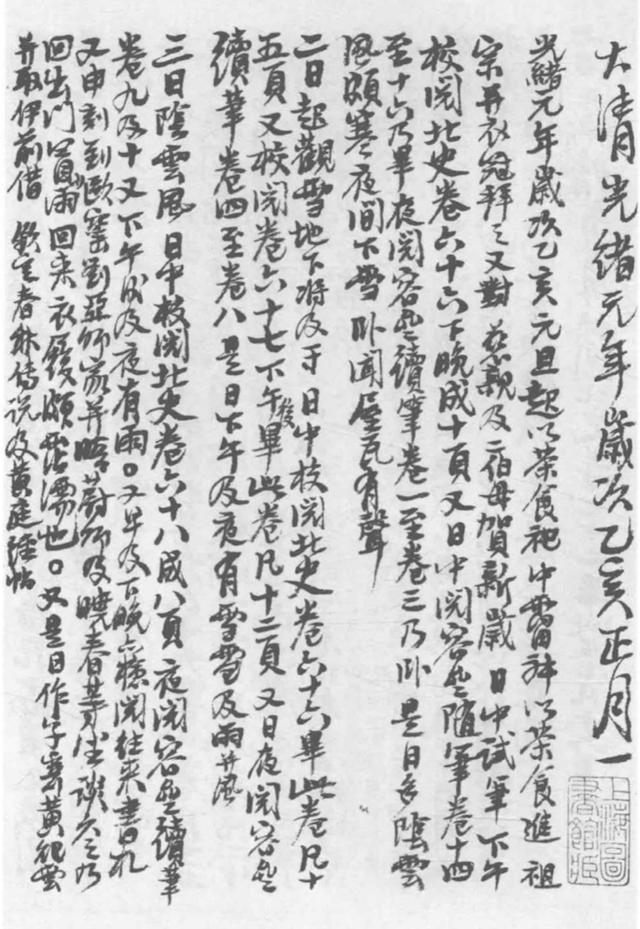 大清光緒元年歲次乙亥正月一
光緒元年歲次乙亥元旦起以茶食祀中霤神以茶食進 祖
宗并衣冠拜之又對 慈親及二伯母賀新歲 日中試筆 下午
校閱北史卷六十六下晚成十頁又日中閱容齋隨筆卷十四
至十六乃畢夜閱容齋續筆卷一至卷三乃卧 是日多陰雲
風頗寒夜間下雪 卧聞屋瓦有聲
二日起觀雪地下將及寸 日中校閱北史卷六十六畢此卷凡十
五頁又校閱卷六十七下午後畢此卷凡十二頁 又日夜閱容齋
續筆卷四至卷八 是日下午及夜有雪雪及雨并風
三日陰雲風 日中校閱北史卷六十八成八頁 夜閱容齋續筆
卷九及十 又下午後及夜有雨。又早及下晚六櫺閱往來書札
又申刻到歐窯劉亞師家并晤蔚師及曉春等坐談久之乃
回出門冒雨回來衣履頗霑濡也。又是日作字寄黃
并取伊前借 欽定春秋傳說及黃庭經帖
上海圖
書館藏